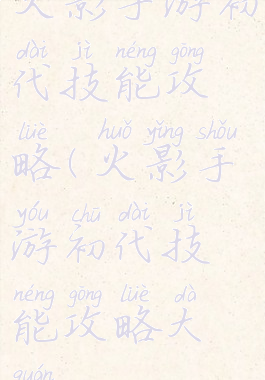 火影手游初
dài jì néng gōng
代技能攻
lüè huǒ yǐng shǒu
略(火影手
yóu chū dài jì
游初代技
néng gōng lüè dà
能攻略大
quán